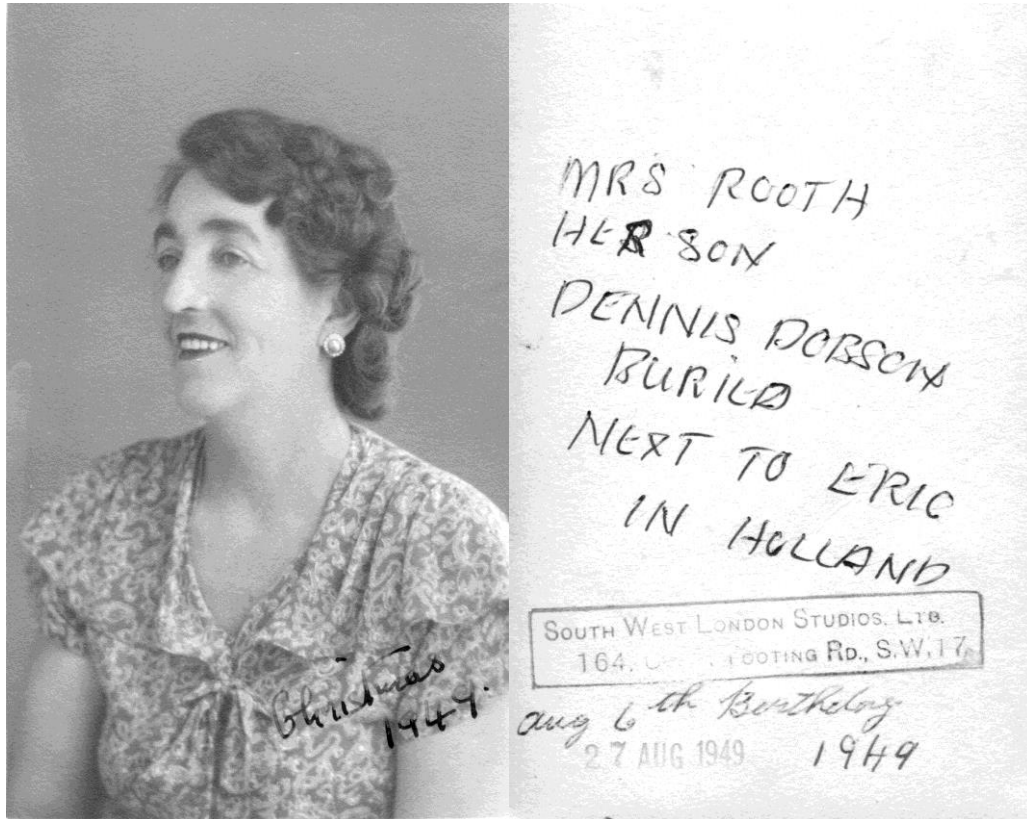 Christmas
1949.
MRS ROOTH
HER SON
DENNIS DOBSON
BURIED
NEXT TO ERIC
IN HOLLAND
SOUTH WEST LONDON STUDIOS, LTD.
164, TOOTING RD., S.W.17
aug 6th Birthday
27 AUG 1949 1949